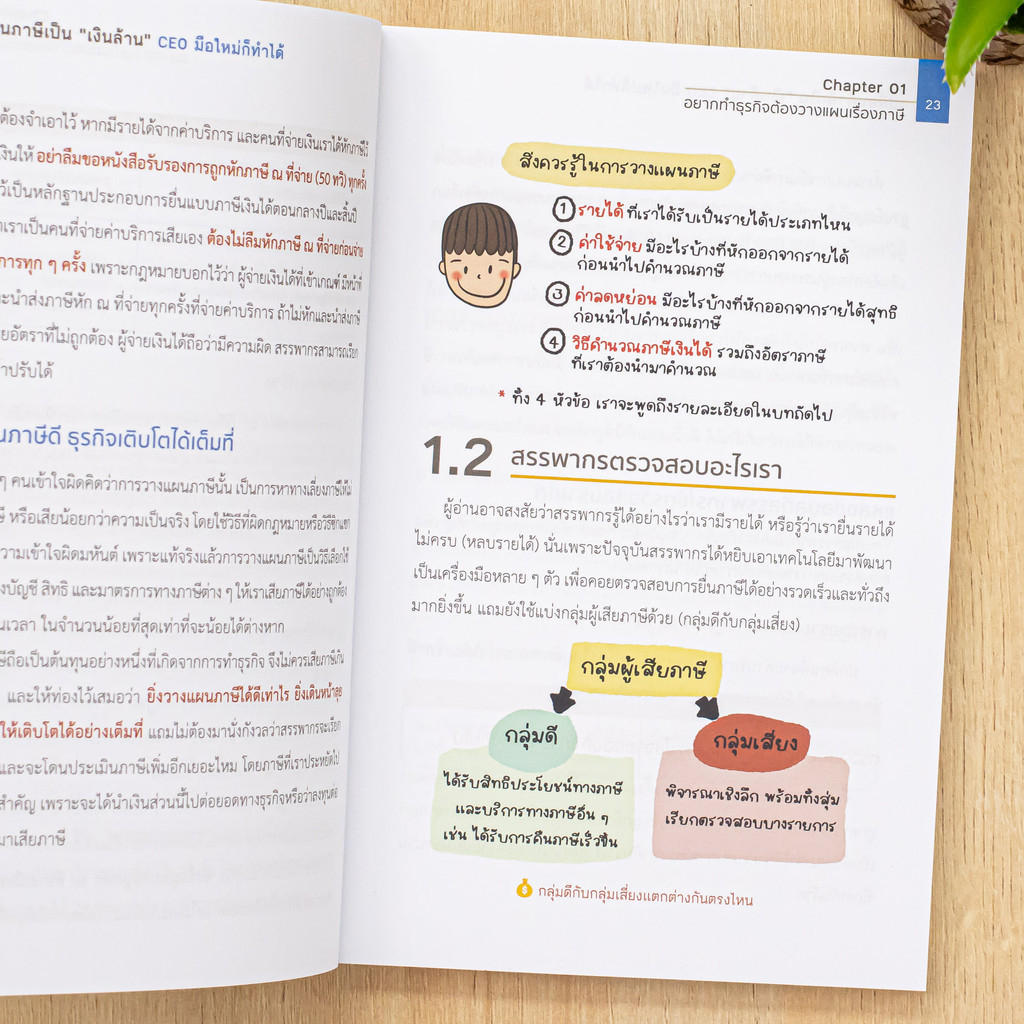 นภาษีเป็น "เงินล้าน" CEO มือใหม่ก็ทำได้
ต้องจำเอาไว้ หากมีรายได้จากค่าบริการ และคนที่จ่ายเงินเราได้หักภาษีไว้
งินให้ อย่าลืมขอหนังสือรับรองการถูกหักภาษี ณ ที่จ่าย (50 ทวิ) ทุกครั้ง
ว้เป็นหลักฐานประกอบการยื่นแบบภาษีเงินได้ตอนกลางปีและสิ้นปี
าเราเป็นคนที่จ่ายค่าบริการเสียเอง ต้องไม่ลืมหักภาษี ณ ที่จ่ายก่อนจ่าย
การทุก ๆ ครั้ง เพราะกฎหมายบอกไว้ว่า ผู้จ่ายเงินได้ที่เข้าเกณฑ์ มีหน้าที่
ะนำส่งภาษีหัก ณ ที่จ่ายทุกครั้งที่จ่ายค่าบริการ ถ้าไม่หักและนำส่งภาษี
ยอัตราที่ไม่ถูกต้อง ผู้จ่ายเงินได้ถือว่ามีความผิด สรรพากรสามารถเรียก
าปรับได้
นภาษีดี ธุรกิจเติบโตได้เต็มที่
ๆ คนเข้าใจผิดคิดว่าการวางแผนภาษีนั้น เป็นการหาทางเลี่ยงภาษีให้ไม่
ษี หรือเสียน้อยกว่าความเป็นจริง โดยใช้วิธีที่ผิดกฎหมายหรือวิธีซิกแซก
วามเข้าใจผิดมหันต์ เพราะแท้จริงแล้วการวางแผนภาษีเป็นวิธีเลือกใช้
งบัญชี สิทธิ และมาตรการทางภาษีต่าง ๆ ให้เราเสียภาษีได้อย่างถูกต้อง
นเวลา ในจำนวนน้อยที่สุดเท่าที่จะน้อยได้ต่างหาก
ษีถือเป็นต้นทุนอย่างหนึ่งที่เกิดจากการทำธุรกิจ จึงไม่ควรเสียภาษีเกิน
และให้ท่องไว้เสมอว่า ยิ่งวางแผนภาษีได้ดีเท่าไร ยิ่งเดินหน้าลุย
ให้เติบโตได้อย่างเต็มที่ แถมไม่ต้องมานั่งกังวลว่าสรรพากรจะเรียก
และจะโดนประเมินภาษีเพิ่มอีกเยอะไหม โดยภาษีที่เราประหยัดไป
สำคัญ เพราะจะได้นำเงินส่วนนี้ไปต่อยอดทางธุรกิจหรือวางลงทุนต่อ
มาเสียภาษี
Chapter 01
อยากทำธุรกิจต้องวางแผนเรื่องภาษี
23
สิ่งควรรู้ในการวางแผนภาษี
1 รายได้ ที่เราได้รับเป็นรายได้ประเภทไหน
2 ค่าใช้จ่าย มีอะไรบ้างที่หักออกจากรายได้
ก่อนนำไปคำนวณภาษี
3 ค่าลดหย่อน มีอะไรบ้างที่หักออกจากรายได้สุทธิ
ก่อนนำไปคำนวณภาษี
4 วิธีคำนวณภาษีเงินได้ รวมถึงอัตราภาษี
ที่เราต้องนำมาคำนวณ
* ทั้ง 4 หัวข้อ เราจะพูดถึงรายละเอียดในบทถัดไป
1.2 สรรพากรตรวจสอบอะไรเรา
ผู้อ่านอาจสงสัยว่าสรรพากรรู้ได้อย่างไรว่าเรามีรายได้ หรือรู้ว่าเรายื่นรายได้
ไม่ครบ (หลบรายได้) นั่นเพราะปัจจุบันสรรพากรได้หยิบเอาเทคโนโลยีมาพัฒนา
เป็นเครื่องมือหลาย ๆ ตัว เพื่อคอยตรวจสอบการยื่นภาษีได้อย่างรวดเร็วและทั่วถึง
มากยิ่งขึ้น แถมยังใช้แบ่งกลุ่มผู้เสียภาษีด้วย (กลุ่มดีกับกลุ่มเสี่ยง)
กลุ่มผู้เสียภาษี
กลุ่มดี
ได้รับสิทธิประโยชน์ทางภาษี
และบริการทางภาษีอื่น ๆ
เช่น ได้รับการคืนภาษีเร็วขึ้น
กลุ่มเสี่ยง
พิจารณาเชิงลึก พร้อมทั้งสุ่ม
เรียกตรวจสอบบางรายการ
กลุ่มดีกับกลุ่มเสี่ยงแตกต่างกันตรงไหน